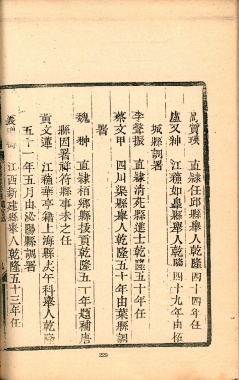 直隸任邱縣舉人乾隆四十四年任
盧又紳　江蘇如皋縣舉人乾隆四十九年由柘
城縣調署
李聲振　直隸清苑縣進士乾隆五十年任
蔡文甲　四川渠縣舉人乾隆五十年由葉縣調
署
魏　直隸柏鄉縣拔貢乾隆五十年題補唐
縣因署符縣事未之任
黃文蓮　江蘇華亭籍上海縣戊午科舉人乾隆
五十一年五月由泌陽縣調署
江西新建縣舉人乾隆五十三年任
229